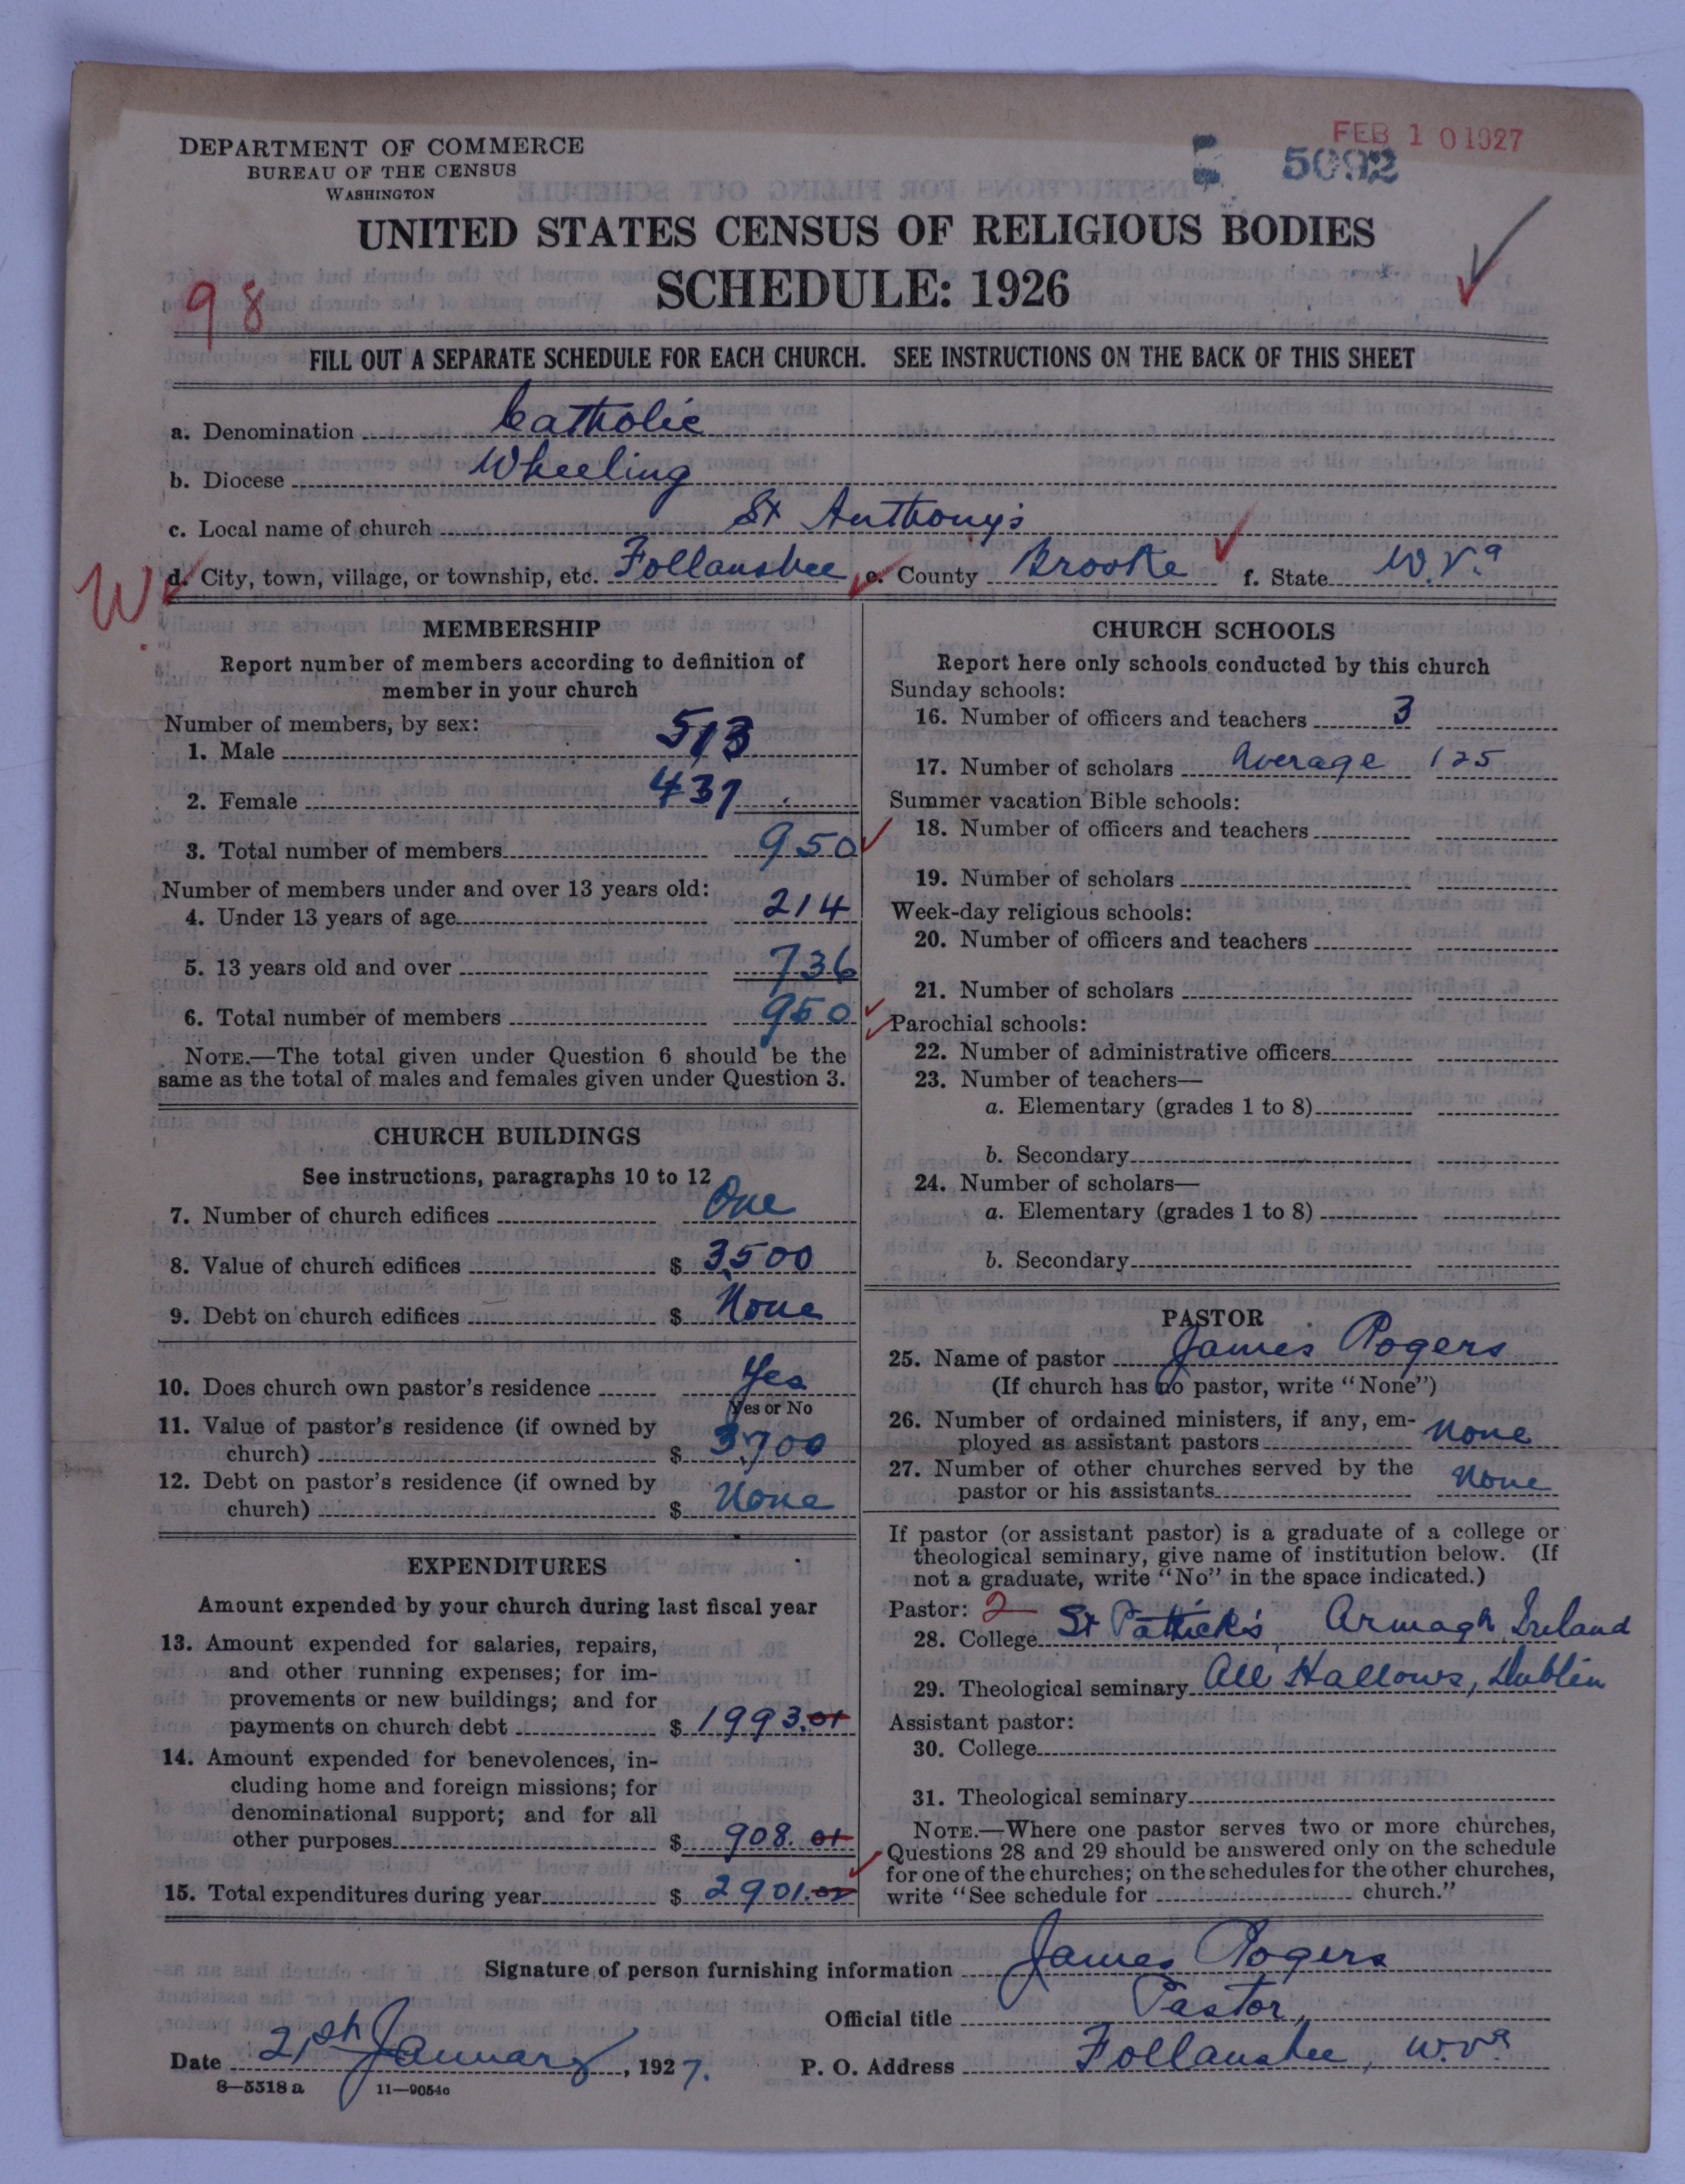 FEB 10 1927
5092
DEPARTMENT OF COMMERCE
BUREAU OF THE CENSUS
WASHINGTON
UNITED STATES CENSUS OF RELIGIOUS BODIES
SCHEDULE: 1926
98
FILL OUT A SEPARATE SCHEDULE FOR EACH CHURCH. SEE INSTRUCTIONS ON THE BACK OF THIS SHEET
a. Denomination Catholic
b. Diocese Wheeling
c. Local name of church St Anthony's
W d. City, town, village, or township, etc. Follansbee e. County Brooke f. State W.Va
MEMBERSHIP
Report number of members according to definition of
member in your church
Number of members, by sex:
1. Male 513
2. Female 437
3. Total number of members 950
Number of members under and over 13 years old:
4. Under 13 years of age 214
5. 13 years old and over 736
6. Total number of members 950
NOTE.—The total given under Question 6 should be the
same as the total of males and females given under Question 3.
CHURCH BUILDINGS
See instructions, paragraphs 10 to 12
7. Number of church edifices One
8. Value of church edifices $ 3,500
9. Debt on church edifices $ None
10. Does church own pastor's residence Yes
Yes or No
11. Value of pastor's residence (if owned by
church) $ 3,700
12. Debt on pastor's residence (if owned by
church) $ None
EXPENDITURES
Amount expended by your church during last fiscal year
13. Amount expended for salaries, repairs,
and other running expenses; for im-
provements or new buildings; and for
payments on church debt $ 1993.01
14. Amount expended for benevolences, in-
cluding home and foreign missions; for
denominational support; and for all
other purposes $ 908.01
15. Total expenditures during year $ 2901.02
CHURCH SCHOOLS
Report here only schools conducted by this church
Sunday schools:
16. Number of officers and teachers 3
17. Number of scholars Average 125
Summer vacation Bible schools:
18. Number of officers and teachers
19. Number of scholars
Week-day religious schools:
20. Number of officers and teachers
21. Number of scholars
Parochial schools:
22. Number of administrative officers
23. Number of teachers—
a. Elementary (grades 1 to 8)
b. Secondary
24. Number of scholars—
a. Elementary (grades 1 to 8)
b. Secondary
PASTOR
25. Name of pastor James Rogers
(If church has no pastor, write "None")
26. Number of ordained ministers, if any, em-
ployed as assistant pastors None
27. Number of other churches served by the
pastor or his assistants None
If pastor (or assistant pastor) is a graduate of a college or
theological seminary, give name of institution below. (If
not a graduate, write "No" in the space indicated.)
Pastor: 2
28. College St Patrick's, Armagh, Ireland
29. Theological seminary All Hallows, Dublin
Assistant pastor:
30. College
31. Theological seminary
NOTE.—Where one pastor serves two or more churches,
Questions 28 and 29 should be answered only on the schedule
for one of the churches; on the schedules for the other churches,
write "See schedule for church."
Signature of person furnishing information James Rogers
Official title Pastor,
Date 21st January, 1927. P. O. Address Follansbee, W.Va
8—5518 a 11—9054c